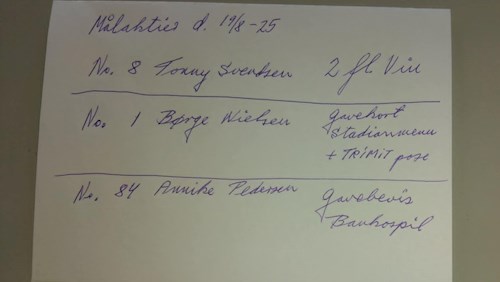 Målaktier d. 19/8-25
No. 8 Tonny Svendsen 2 fl Vin
No. 1 Børge Nielsen gavekort
Stadionmenu
+ TRIMIT pose
No. 84 Annike Pedersen Gavebevis
Bankospil